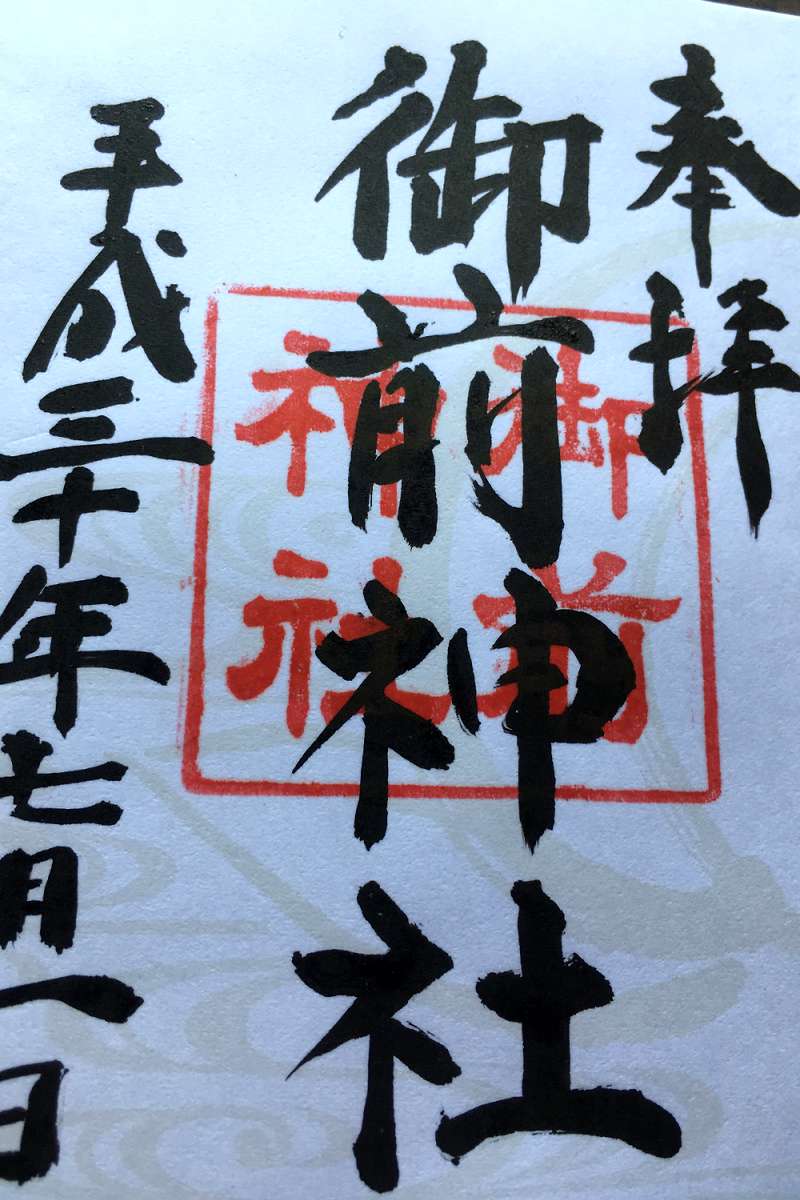 奉拝
御前神社
御前
神社
平成三十年七月一日